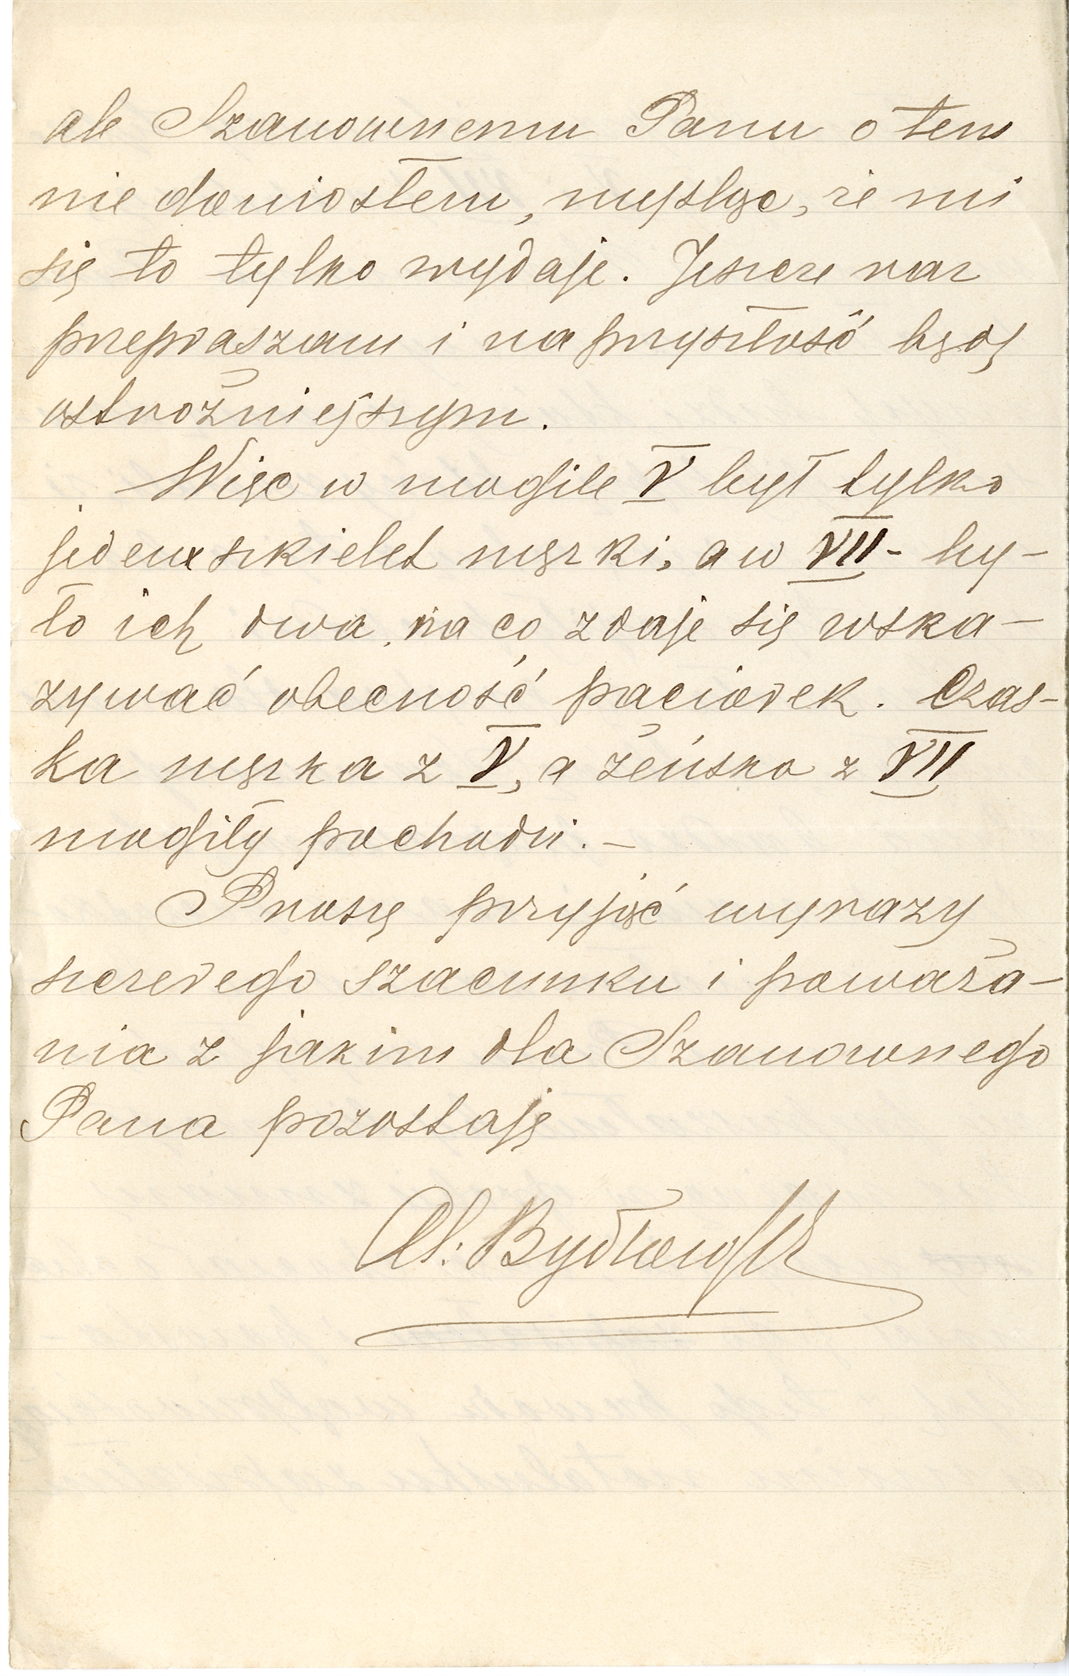 ale Szanownemu Panu o tem
nie doniosłem, myśląc, że mi
się to tylko wydaje. Jeszcze raz
przepraszam i na przyszłość będę
ostrożniejszym.
Więc w mogile V był tylko
jeden szkielet męzki, a w VII - by-
ło ich dwa, na co zdaje się wska-
zywać obecność paciorek. Czas-
ka męzka z V, a żeńska z VII
mogiły pochodzi. -
Proszę przyjąć wyrazy
szczerego szacunku i poważa-
nia z jakim dla Szanownego
Pana pozostaję
Al. Bydłowski